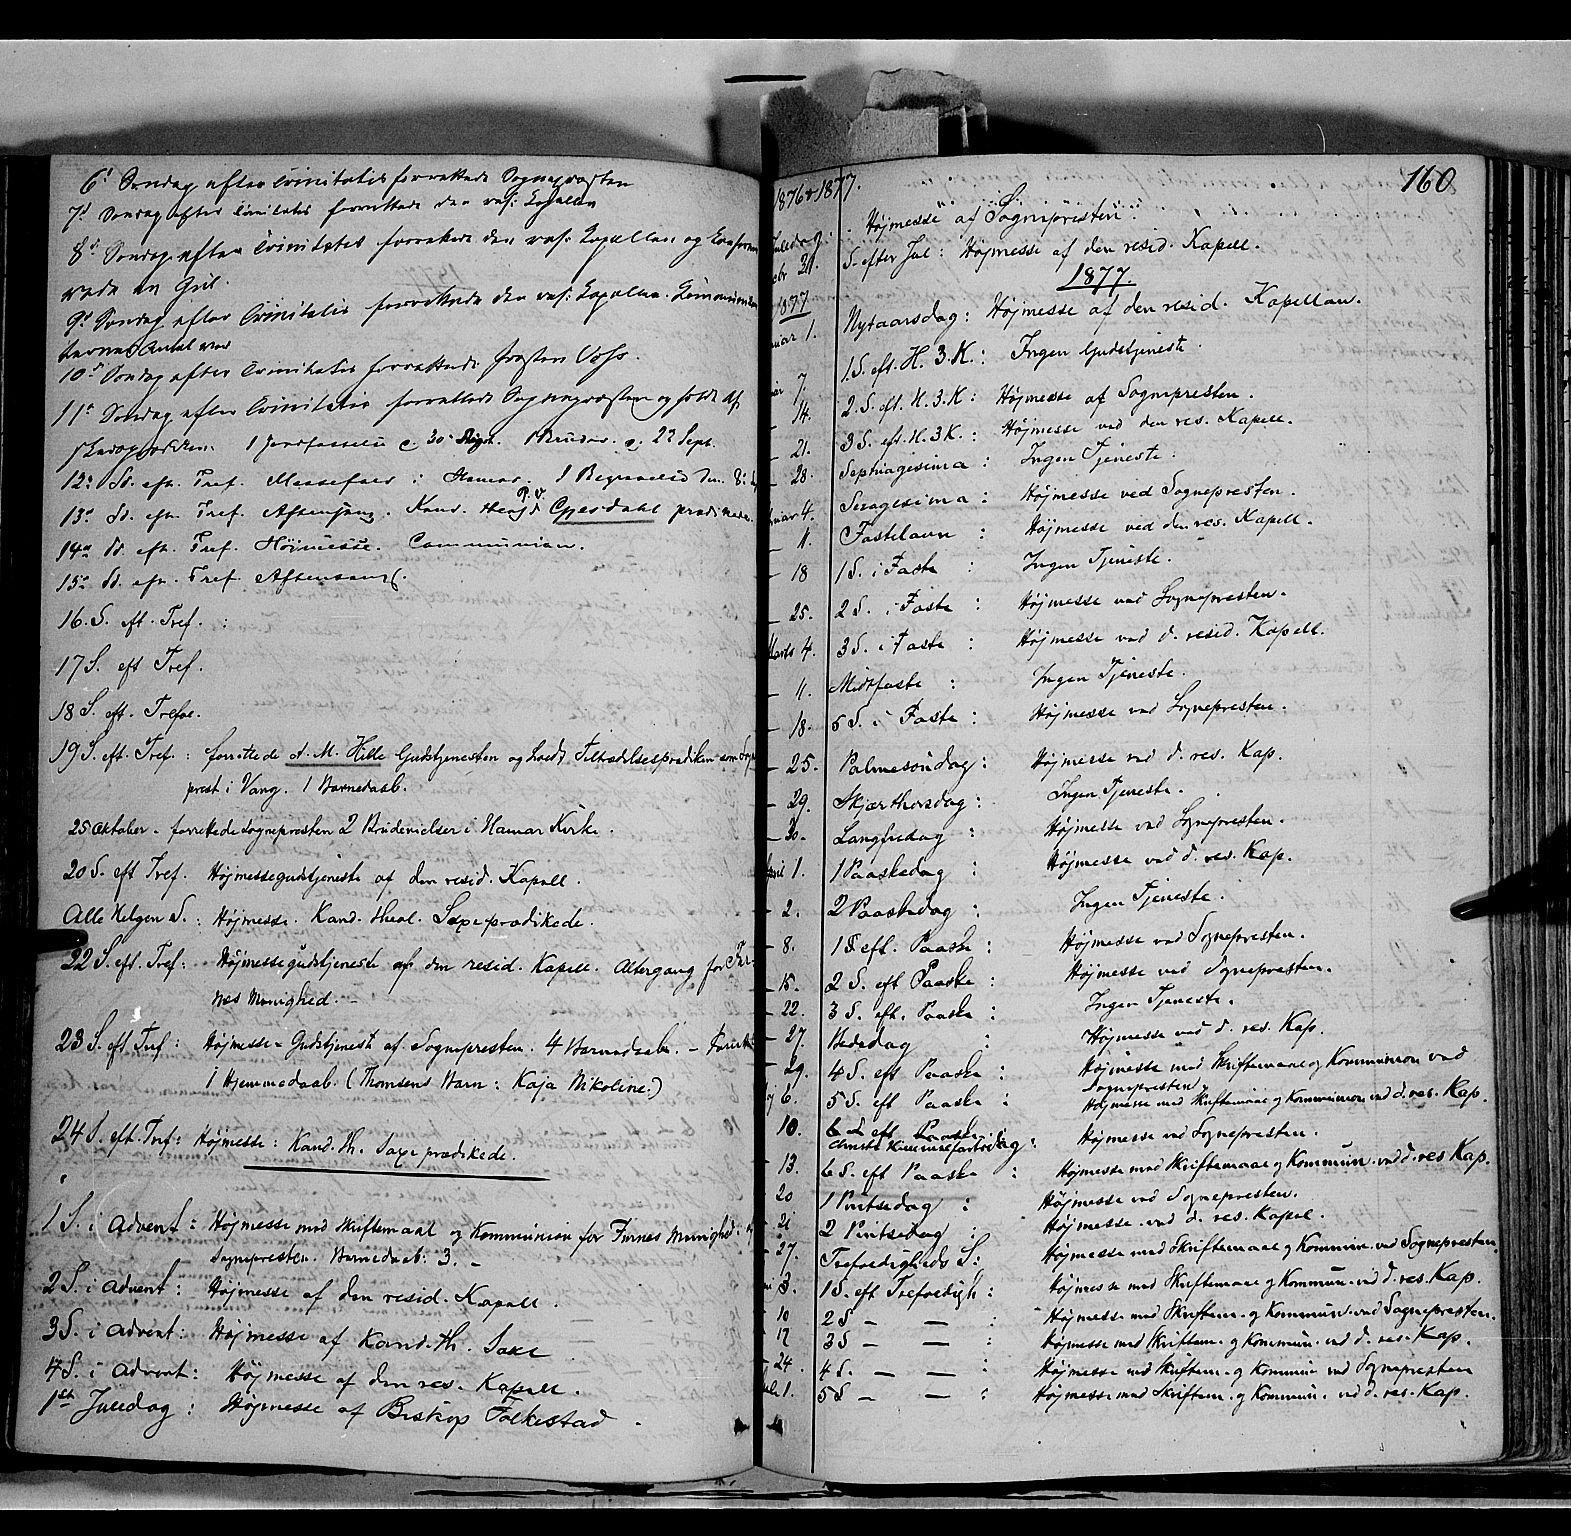 6t Søndag efter Trinitatis forrettede Sognepræsten
7d Søndag efter Trinitatis forrettede den res: Capellan
8d Søndag efter Trinitatis forrettede den res: Capellan og
9d Søndag efter Trinitatis forrettede den res: Capellan.
10d Søndag efter Trinitatis forrettede Voss.
11e Søndag efter Trinitatis forrettede Sognepræsten og holdt
22 Sept.
12e Sd. eft. Tref. Messefald i Hamar. 1 Begravelse den 8:
13e Sd. eft. Tref. Aftensang. Kand. Gjesdahl prædikede.
14e Sd. eft. Tref. Højmesse. Communion.
15e Sd. eft. Tref. Aftensang.
16. S. eft. Tref. :
17 S. eft Tref.
18 S. eft. Trefol.
19 S. eft. Tref. : forrettede A. M. Hille Gudstjenesten og holdt Tiltrædelsesprædiken som
prest i Vang. 1 Barnedaab.
25 Oktober - forrettede Sognepresten 2 Brudevielser i Hamar Kirke.
20 S. eft Tref. Højmessegudstjeneste af den resid. Kapell.
Alle Helgen S. : Højmesse. Kand. theol. Saxe prædikede.
22 S. eft. Tref: Højmessegudstjeneste af den resid. Kapell. Altergang for Fur-
nes Menighed. -
23 S. eft Tref : Højmesse-Gudstjenest af Sognepresten. 4 Barnedaab. -
1 Hjemmedaab. (Thomsens Barn: Kaja Nikoline.)
24 S. eft. Tref: Højmesse: Kand. th. Saxe prædikede.
1 S. i Advent : Højmesse med Skriftemaal og Kommunion for Furnes Menighed:
Sognepresten. Barnedaab: 3. -
2 S. i Advent : Højmesse af den resid. Kapell.
3 S. i Advent : Højmesse af Kand. th. Saxe
4 S. i Advent : Højmesse af den res. Kapell.
1ste Juledag : Højmesse af Biskop Folkestad.
160
1876 & 1877.
Juledag : Højmesse af Sognepresten.
S. efter Jul : Højmesse af den resid. Kapell.
1877.
1877
1. Nytaarsdag : Højmesse af den resid. Kapellan.
7. 1. S. eft. H. 3. K. : Ingen Gudstjeneste.
14. 2. S. eft. H. 3. K : Højmesse af Sognepresten.
- 21. 3 S. eft. H. 3 K. : Højmesse ved den res. Kapell.
- 28. Septuagesima : Ingen Tjeneste.
4. Sexagesima : Højmesse ved Sognepresten.
- 11. Fastelavn : Højmesse ved den res. Kapell.
- 18 1 S. i Faste : Ingen Tjeneste.
- 25. 2 S. i Faste : Højmesse ved Sognepresten.
Marts 4. 3 S. i Faste : Højmesse ved d. resid. Kapell.
- 11. Midtfaste : Ingen Tjeneste.
- 18. 5 S. i Faste : Højmesse ved Sognepresten.
- 25. Palmesøndag : Højmesse ved d. res. Kap.
- 29. Skjærthorsdag : Ingen Tjeneste.
- 30. Langfredag : Højmesse ved Sognepresten.
April 1. 1 Paaskedag : Højmesse ved d. res. Kap.
- 2. 2 Paaskedag : Ingen Tjeneste.
- 8. 1 S eft. Paaske : Højmesse ved Sognepresten.
- 15. 2 S. eft Paaske : Højmesse ved Sognepresten.
- 22. 3 S. eft. Paaske : Ingen Tjeneste.
- 27. Bededag : Højmesse ved d. res. Kap.
- 29. 4 S. eft Paaske : Højmesse med Skriftemaal og Kommunion ved
Sognepresten
6. 5 S. eft Paaske : Højmesse med Skriftemaal og Kommunion ved d. res. Kap.
10. 6 S eft Paaske
Christi Himmelfartsdag : Højmesse ved Sognepresten.
13. 6 S. eft Paaske : Højmesse med Skriftemaal og Kommun. ved d. res Kap.
20 1 Pintsedag : Højmesse ved Sognepresten.
21 2 Pintsedag : Højmesse ved d. res. Kapel.
- 27. Trefoldigheds S. : Højmesse med Skriftemaal og Kommun. ved Sognepresten.
3. 1 S. eft Trefoldigh : Højmesse med Skriftemaal og Kommun. ved d. res. Kap.
10 2 S - - : Højmesse med Skriftem. og Kommun. ved Sognepresten.
17 3 S - - : Højmesse med Skriftem. og Kommun. ved d. res. Kap.
24. 4 S. - - : Højmesse med Skriftem. og Kommun ved Sognepresten
1. 5 S - - : Højmesse med Skriftem. og Kommun. ved d. res. Kap.